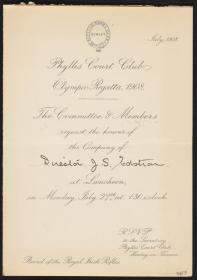 HENLEY
July 1908.
Phyllis Court Club
Olympic Regatta, 1908.
The Committee & Members
request the honour of
the Company of
Director J. S.
at Luncheon,
on Monday July 27th at 1.30 o'clock.
R.S.V.P.
to the Secretary
Phyllis Court Club
Henley on Thames
Band of the Royal Irish Rifles